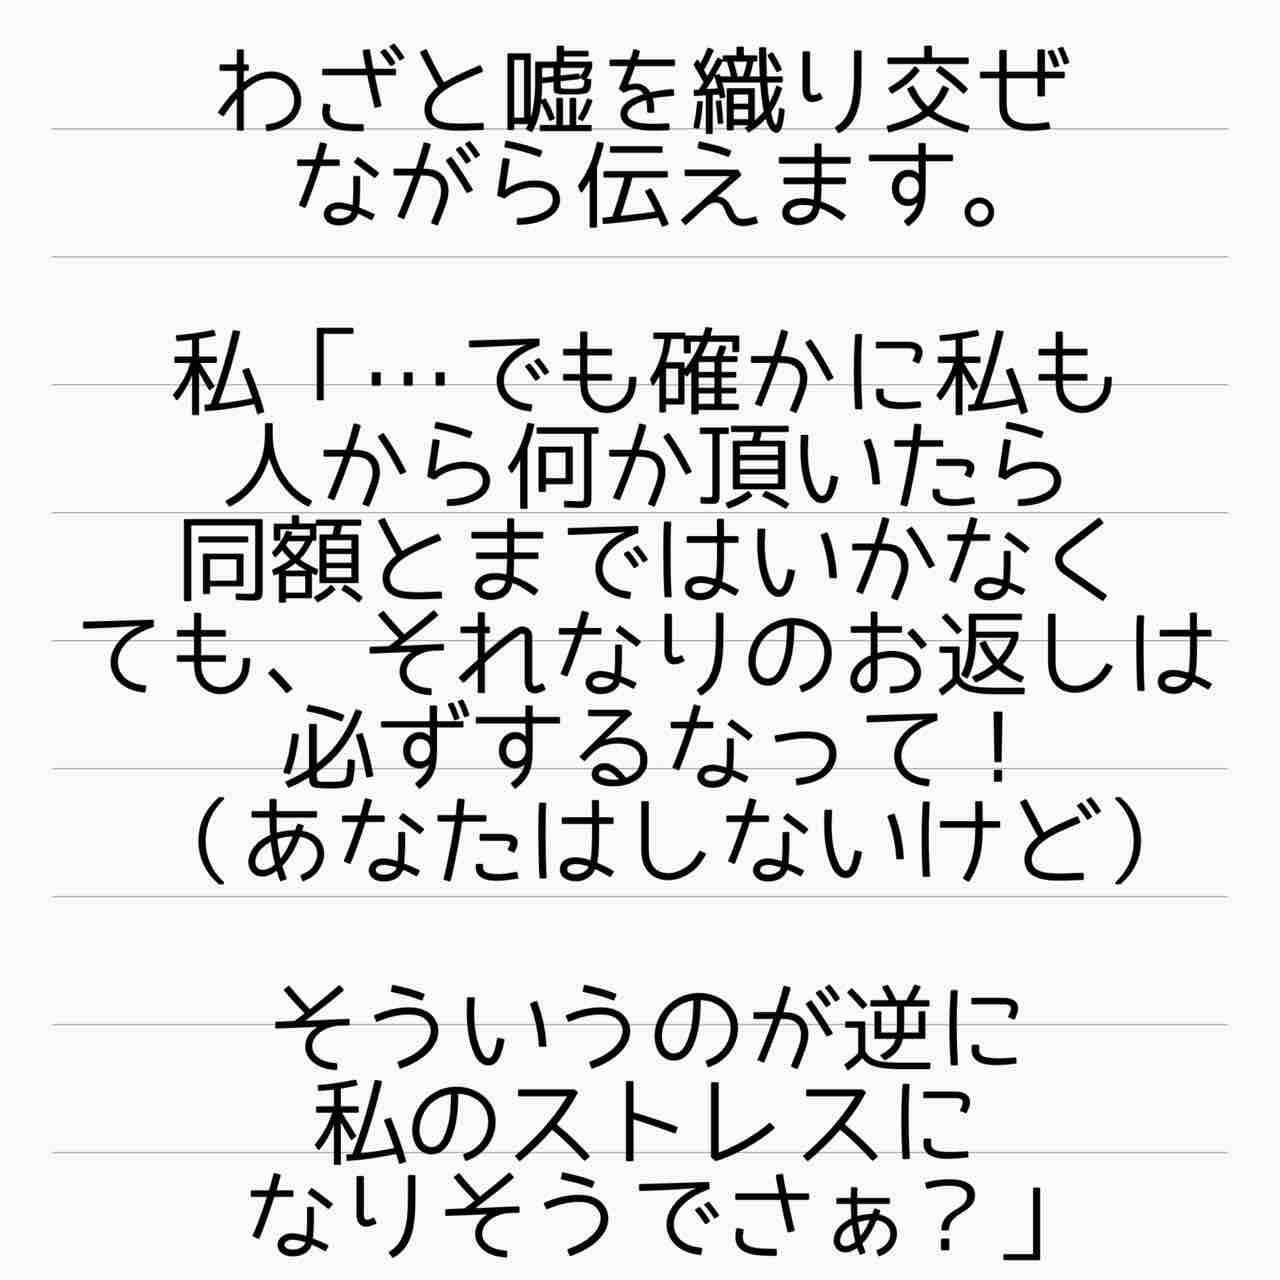 わざと嘘を織り交ぜ
ながら伝えます。
私「…でも確かに私も
人から何か頂いたら
同額とまではいかなく
ても、それなりのお返しは
必ずするなって！
（あなたはしないけど）
そういうのが逆に
私のストレスに
なりそうでさぁ？」